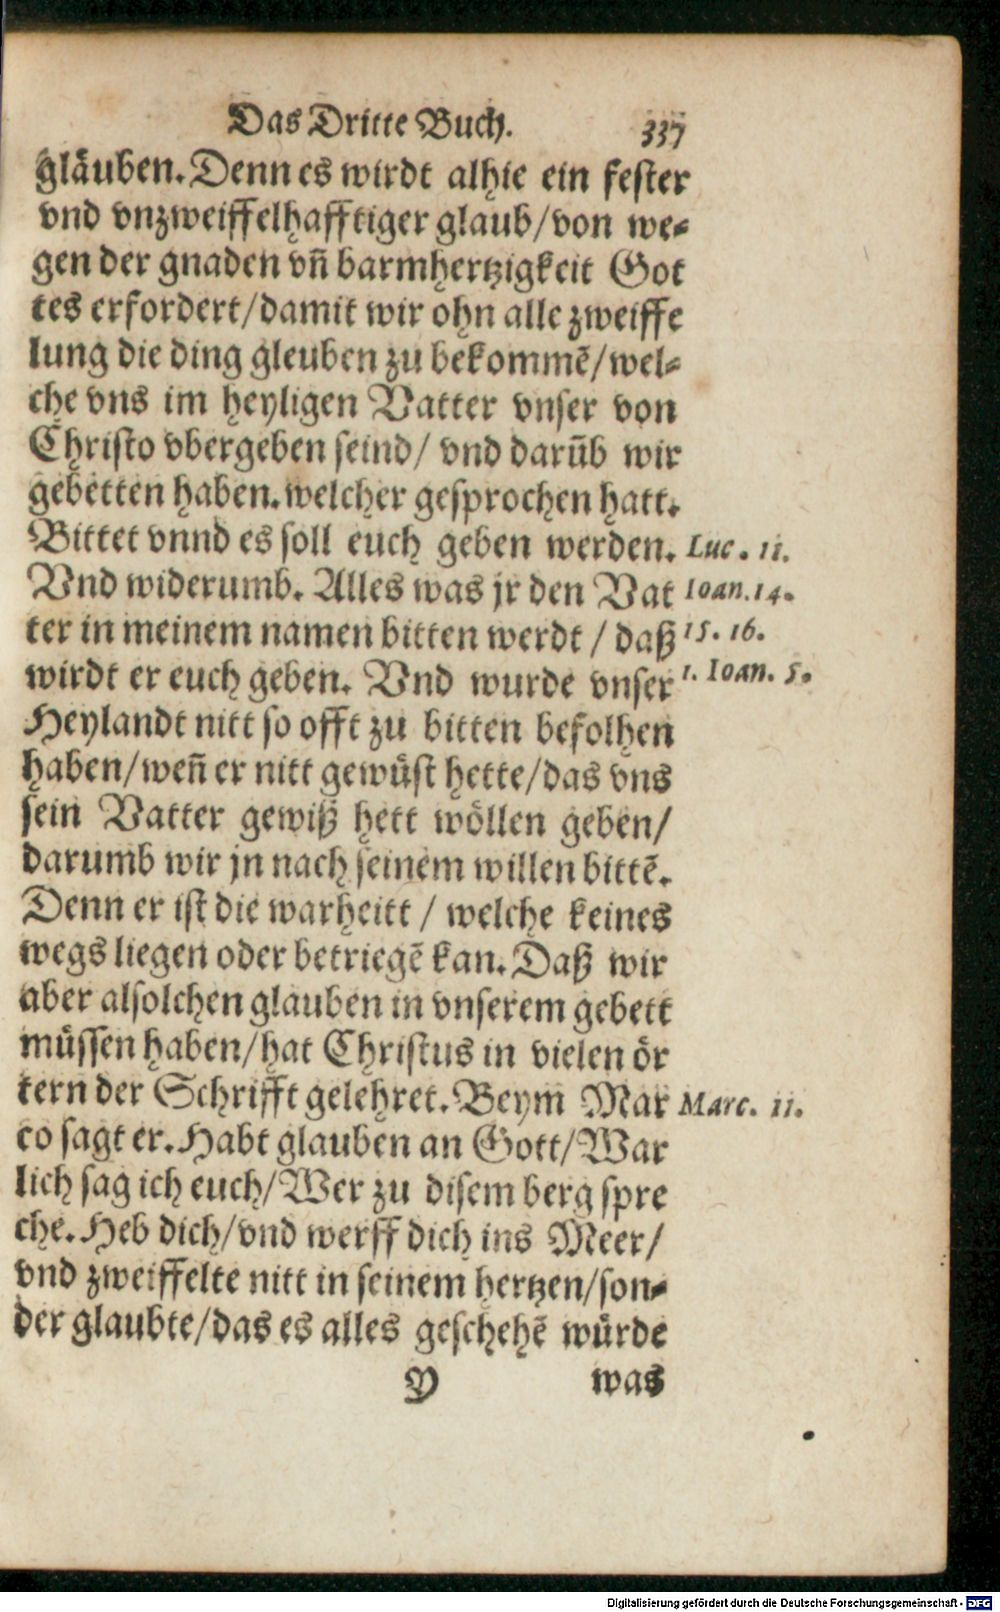 Das Dritte Buch. 337
gläuben. Denn es wirdt alhie ein fester
vnd vnzweiffelhafftiger glaub/von we-
gen der gnaden vn̄ barmhertzigkeit Got
tes erfordert/damit wir ohn alle zweiffe
lung die ding gleuben zu bekommē/wel-
che vns im heyligen Vatter vnser von
Christo vbergeben seind/ vnd darūb wir
gebetten haben. welcher gesprochen hatt.
Bittet vnnd es soll euch geben werden. Luc. 11.
Vnd widerumb. Alles was jr den Vat Ioan. 14.
ter in meinem namen bitten werdt / daß 15. 16.
wirdt er euch geben. Vnd wurde vnser 1. Ioan. 5.
Heylandt nitt so offt zu bitten befolhen
haben/wen̄ er nitt gewüst hette/das vns
sein Vatter gewiß hett wöllen geben/
darumb wir jn nach seinem willen bittē.
Denn er ist die warheitt / welche keines
wegs liegen oder betriegē kan. Daß wir
aber alsolchen glauben in vnserem gebett
müssen haben/hat Christus in vielen ör
tern der Schrifft gelehret. Beym Mar Marc. 11.
co sagt er. Habt glauben an Gott/War
lich sag ich euch/Wer zu disem berg spre
che. Heb dich/vnd werff dich ins Meer/
vnd zweiffelte nitt in seinem hertzen/son-
der glaubte/das es alles geschehē würde
Y was
Digitalisierung gefördert durch die Deutsche Forschungsgemeinschaft - DFG